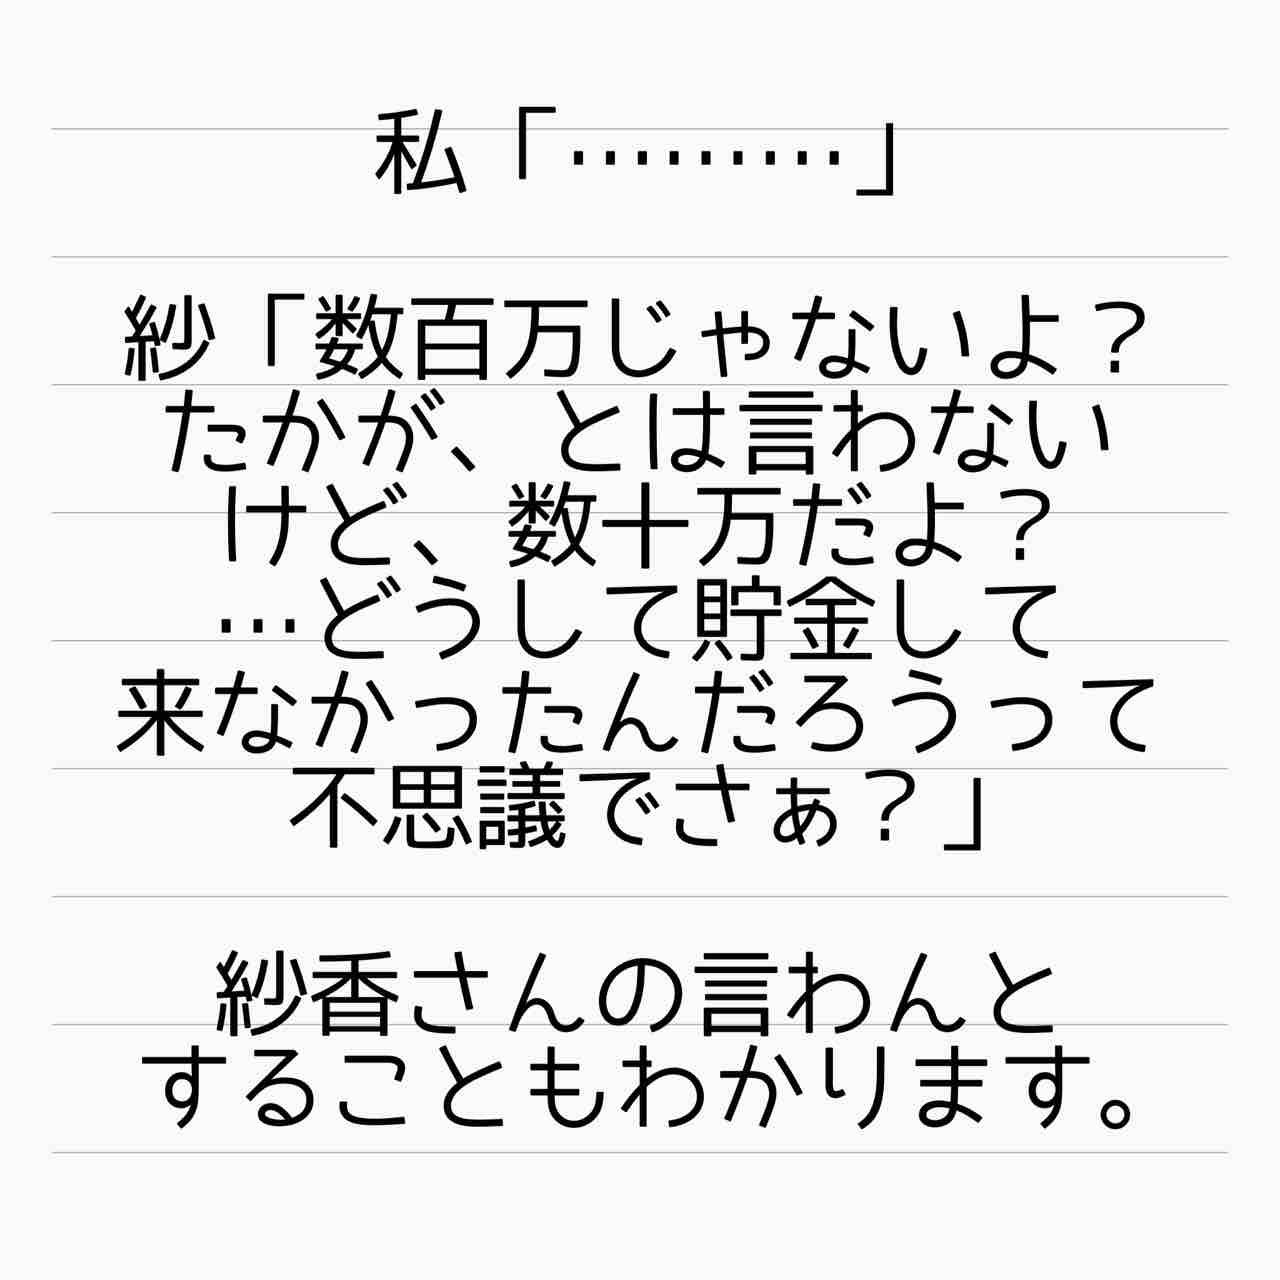 私「………」
紗「数百万じゃないよ？
たかが、とは言わない
けど、数十万だよ？
…どうして貯金して
来なかったんだろうって
不思議でさぁ？」
紗香さんの言わんと
することもわかります。